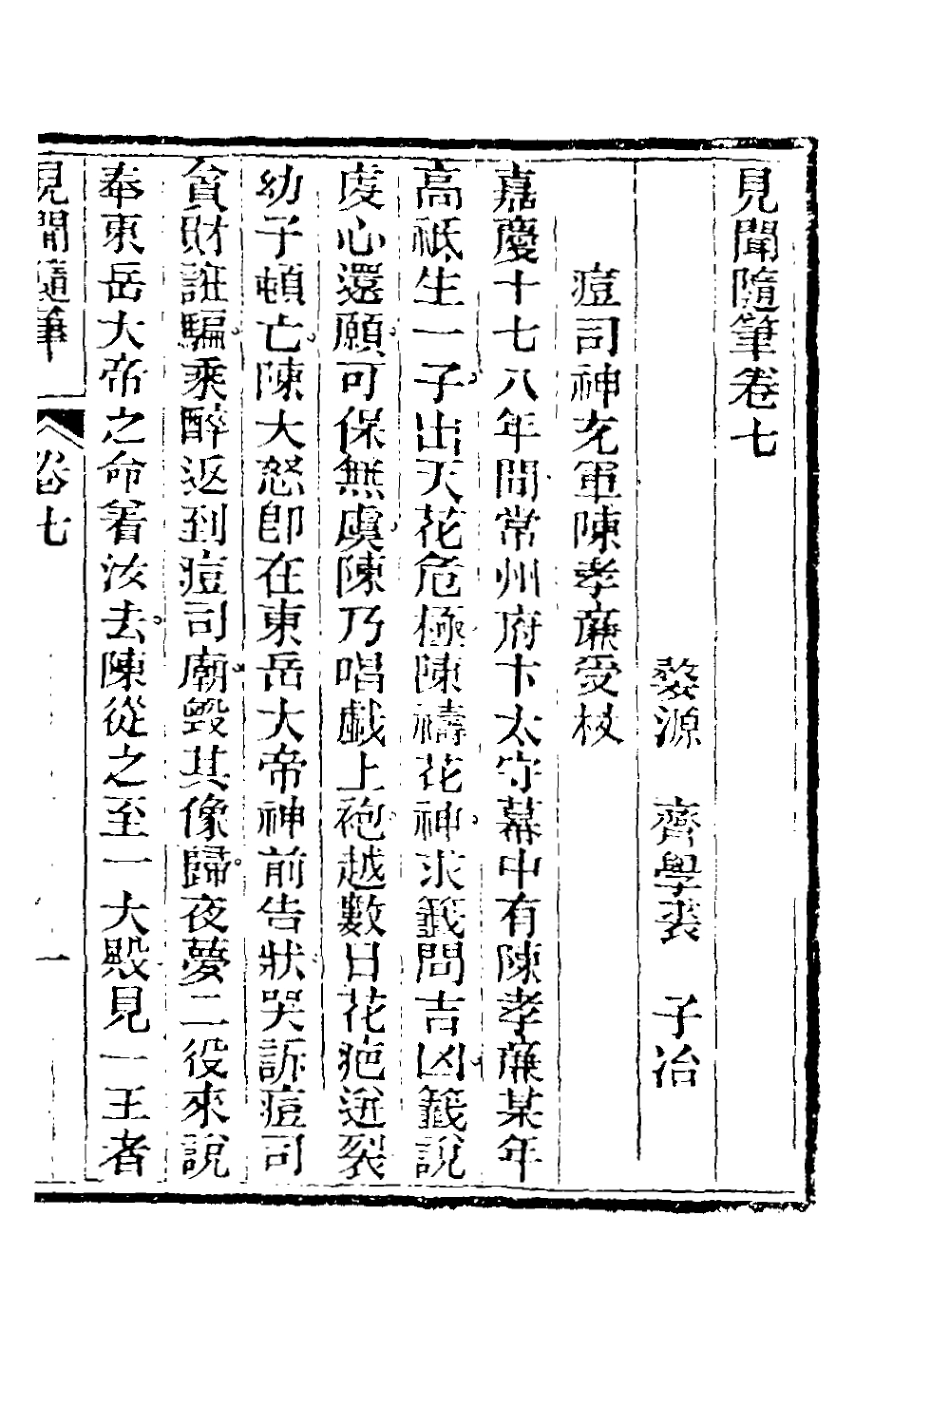 見聞隨筆卷七
婺源　齊學裘　子冶
痘司神充軍陳孝廉受杖
嘉慶十七八年間常州府卞太守幕中有陳孝廉某年
高祇生一子出天花危極陳禱花神求籤問吉凶籤說
虔心還願可保無虞陳乃唱戲上袍越數日花疤迸裂
幼子頓亡陳大怒即在東岳大帝神前告狀哭訴痘司
貪財誑騙乘醉返到痘司廟毀其像歸夜夢二役來說
奉東岳大帝之命着汝去陳從之至一大殿見一王者
見聞隨筆　卷七　一